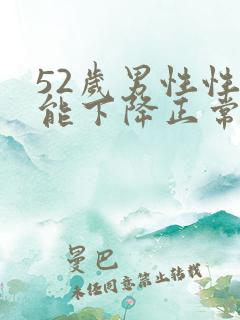 52歲男性性
能下降正常
曼巴
未经同意禁止转载